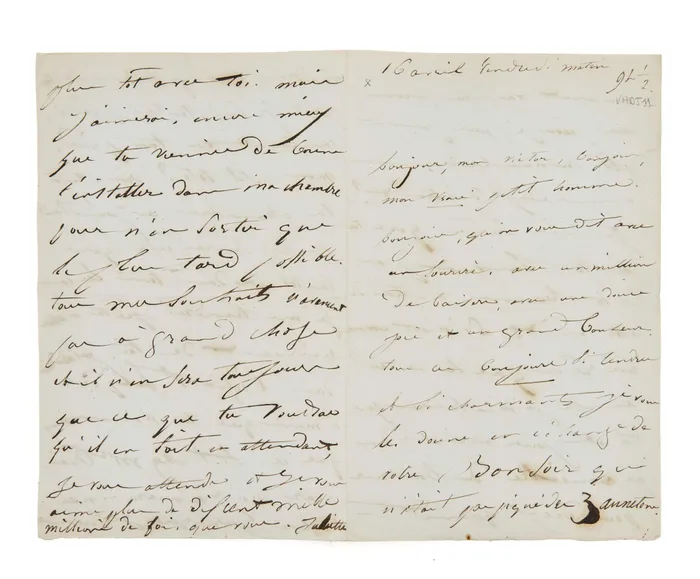 16 avril Vendredi matin
9h ½
VHDJ 11
bonjour, mon victor, bonjour,
mon vrai petit homme.
bonjour, qu'on vous dit avec
un sourire, avec un million
de baisers, avec une douce
joie et un grand bonheur.
tous ces bonjours si tendres
et si charmants je vous
les donne en échange de
votre Bonsoir qui
n'était que piqué des 3 hannetons.
plus tôt avec toi. mais
j'aimerai, encore mieux
que tu viennes de bonne
t'installer dans ma chambre
pour n'en sortir que
le plus tard possible.
tous mes souhaits n'avancent
pas à grand chose
et il n'en sera toujours
que ce que tu voudras
qu'il en soit. en attendant,
je vous attends et je vous
aime plus de dix cent mille
millions de fois que vous. Juliette